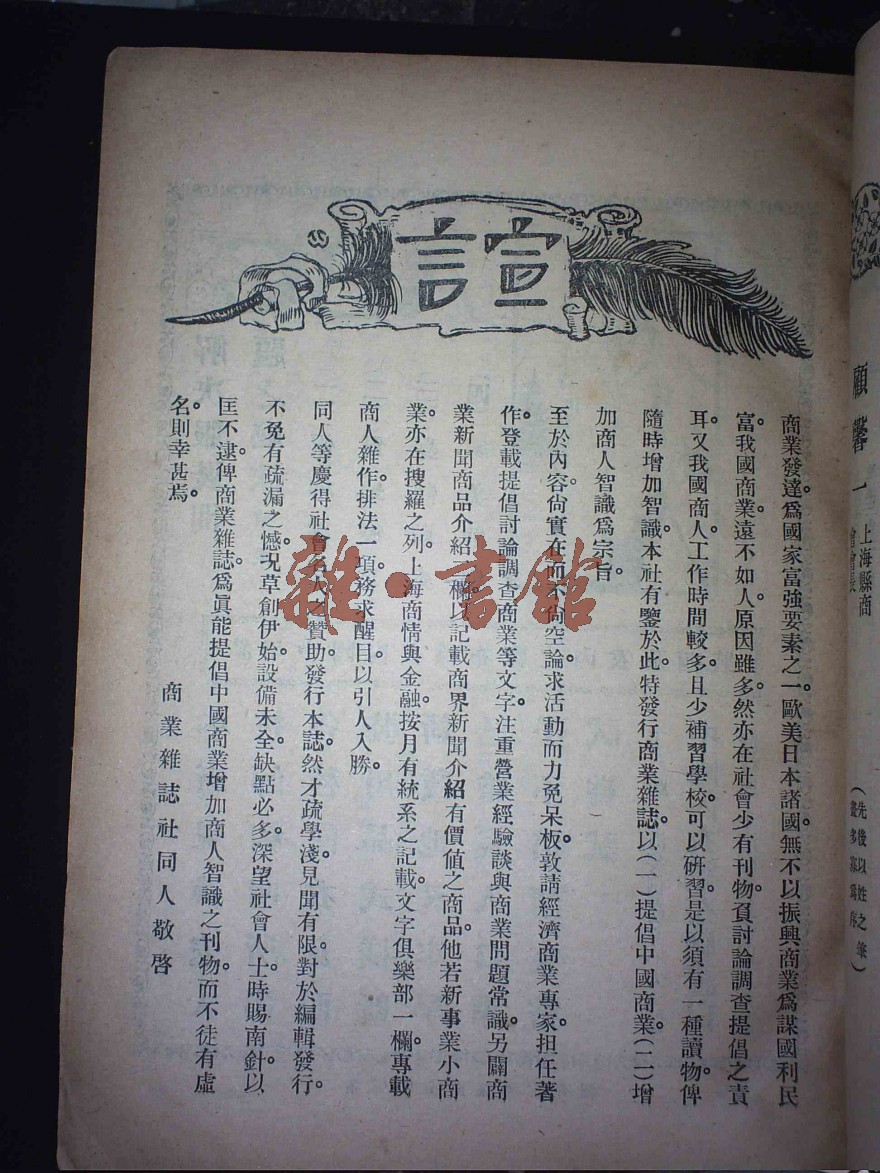 顧馨一
上海縣商
會會長
(先後以姓之筆
畫多寡爲序)
宣言
商業發達。爲國家富強要素之一。歐美日本諸國。無不以振興商業爲謀國利民
富。我國商業。遠不如人。原因雖多。然亦在社會少有刊物。負討論調查提倡之責
耳。又我國商人。工作時間較多。且少補習學校。可以研習。是以須有一種讀物。俾
隨時增加智識。本社有鑒於此。特發行商業雜誌。以(一)提倡中國商業。(二)增
加商人智識爲宗旨。
至於內容。尙實在而不尙空論。求活動而力免呆板。敦請經濟商業專家。担任著
作。登載提倡討論調查商業等文字。注重營業經驗談與商業問題常識。另闢商
業新聞商品介紹二欄。以記載商界新聞。介紹有價値之商品。他若新事業小商
業。亦在搜羅之列。上海商情與金融。按月有統系之記載。文字俱樂部一欄。專載
商人雜作。排法一項。務求醒目。以引人入勝。
同人等慶得社會名人之贊助。發行本誌。然才疏學淺。見聞有限。對於編輯發行。
不免有疏漏之憾。况草創伊始。設備未全。缺點必多。深望社會人士。時賜南針。以
匡不逮。俾商業雜誌。爲眞能提倡中國商業增加商人智識之刊物。而不徒有虛
名。則幸甚焉。
商業雜誌社同人敬啓
雜·書館